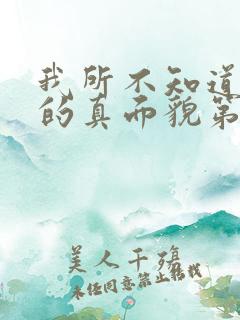 我所不知道
的真面貌第
美人千殇
未经同意禁止转载